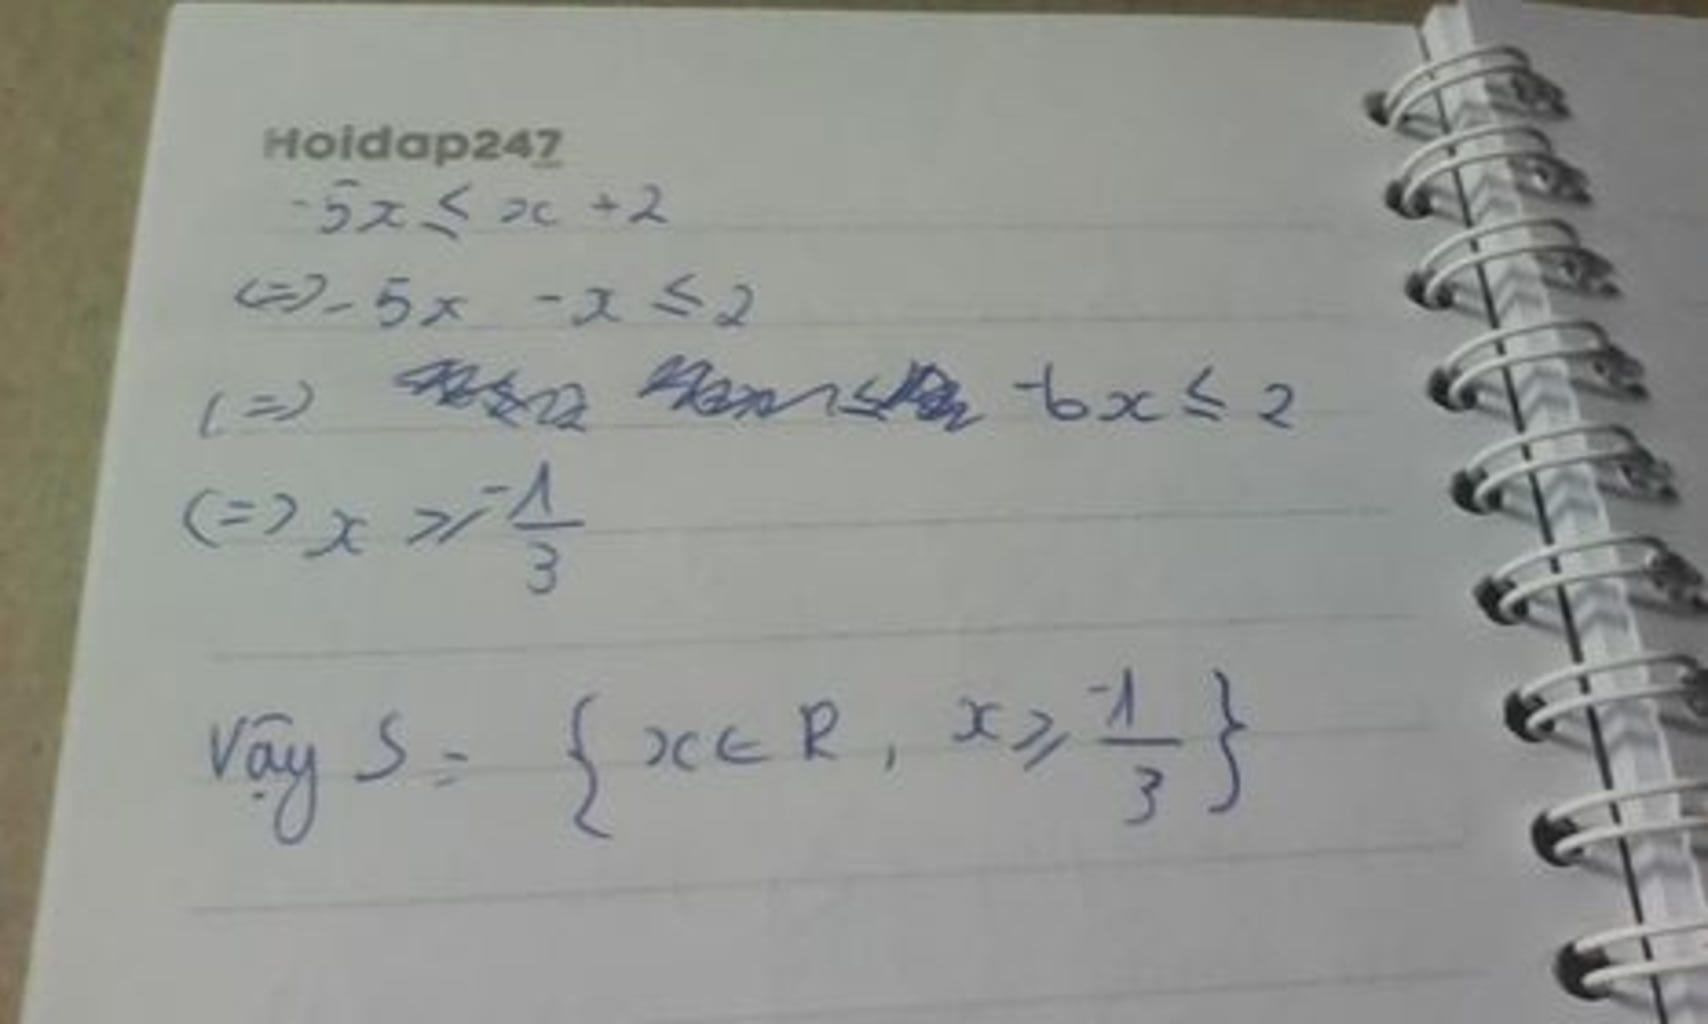 Hoidap247
-5x ≤ x + 2
(=) - 5x - x ≤ 2
(=) -6x ≤ 2
(=) x ≥ -1/3
Vậy S = { x ∈ R , x ≥ -1/3 }